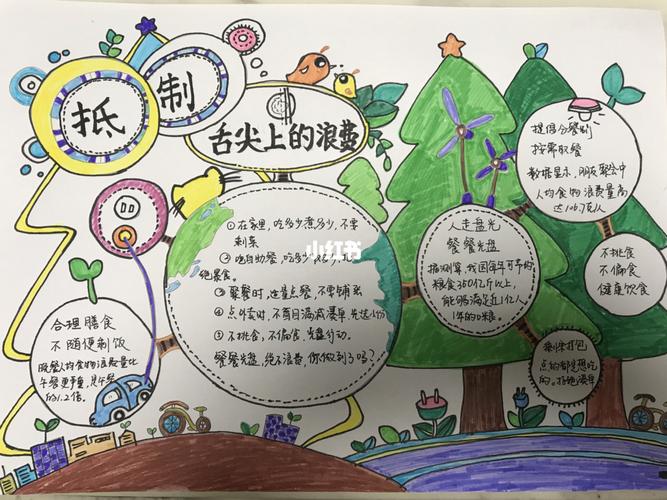 抵制
舌尖上的浪费
①在家里,吃多少煮多少,不要
剩菜
②吃自助餐,吃多少
绝暴食。
③聚餐时,适量点餐,不要铺张
④点外卖时,不盲目满减凑单,先达人份
⑤不挑食,不偏食,光盘行动。
餐餐光盘,绝不浪费,你做到了吗?
小红书
合理膳食
不随便剩饭
晚餐人均食物浪费量比
午餐更重,是午餐
的1.2倍。
人走盘光
餐餐光盘
据测算,我国每年可节约
粮食350亿斤以上,
能够满足近1亿人
1年的口粮。
提倡分餐制
按需取餐
数据显示,朋友聚会中
人均食物浪费量高
达106.7克/人
不挑食
不偏食
健康饮食
剩余打包
点的都是想吃
的。拒绝凑单